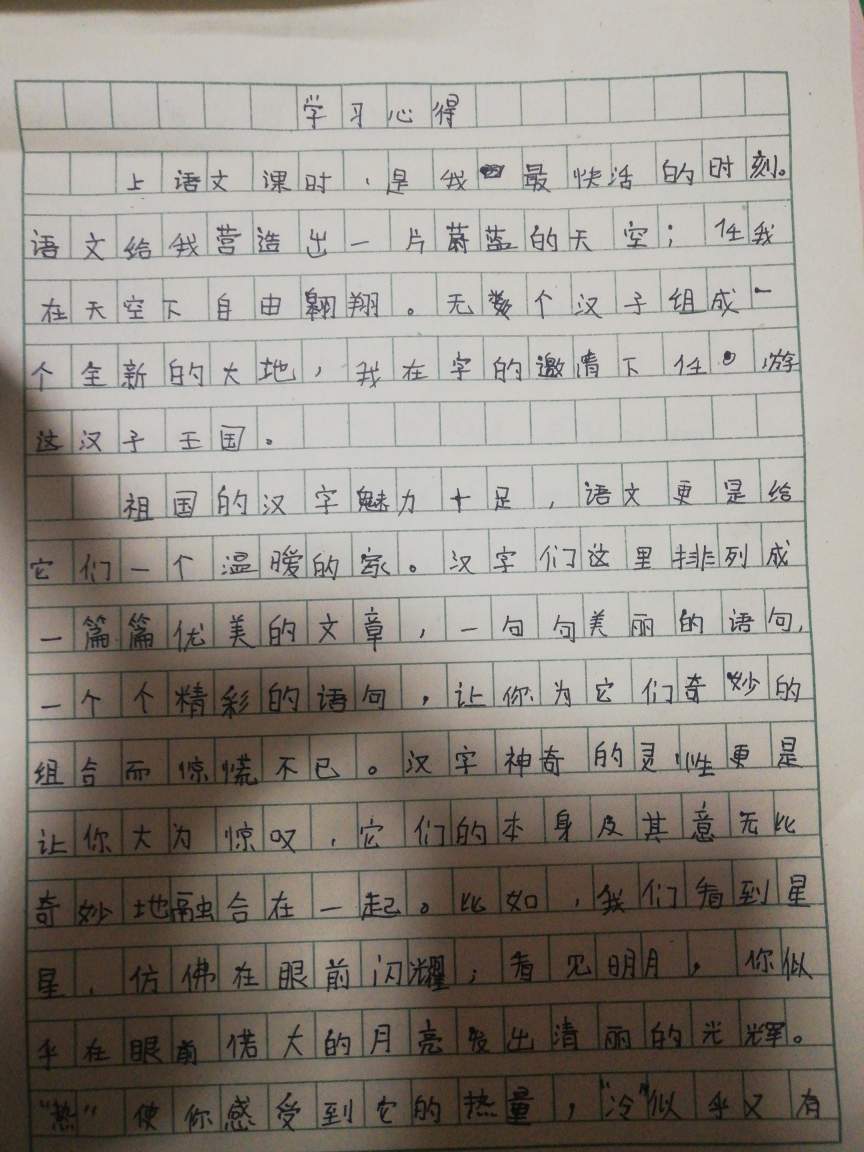 学习心得
上语文课时,是我最快活的时刻。
语文给我营造出一片蔚蓝的天空;任我
在天空下自由翱翔。无数个汉子组成一
个全新的大地,我在字的邀请下任游
这汉子王国。
祖国的汉字魅力十足,语文更是给
它们一个温暖的家。汉字们这里排列成
一篇篇优美的文章,一句句美丽的语句,
一个个精彩的语句,让你为它们奇妙的
组合而惊慌不已。汉字神奇的灵性更是
让你大为惊叹,它们的本身及其意无比
奇妙地融合在一起。比如,我们看到星
星,仿佛在眼前闪耀;看见明月,你似
乎在眼前偌大的月亮发出清丽的光辉。
"热"使你感受到它的热量,"冷"似乎又有